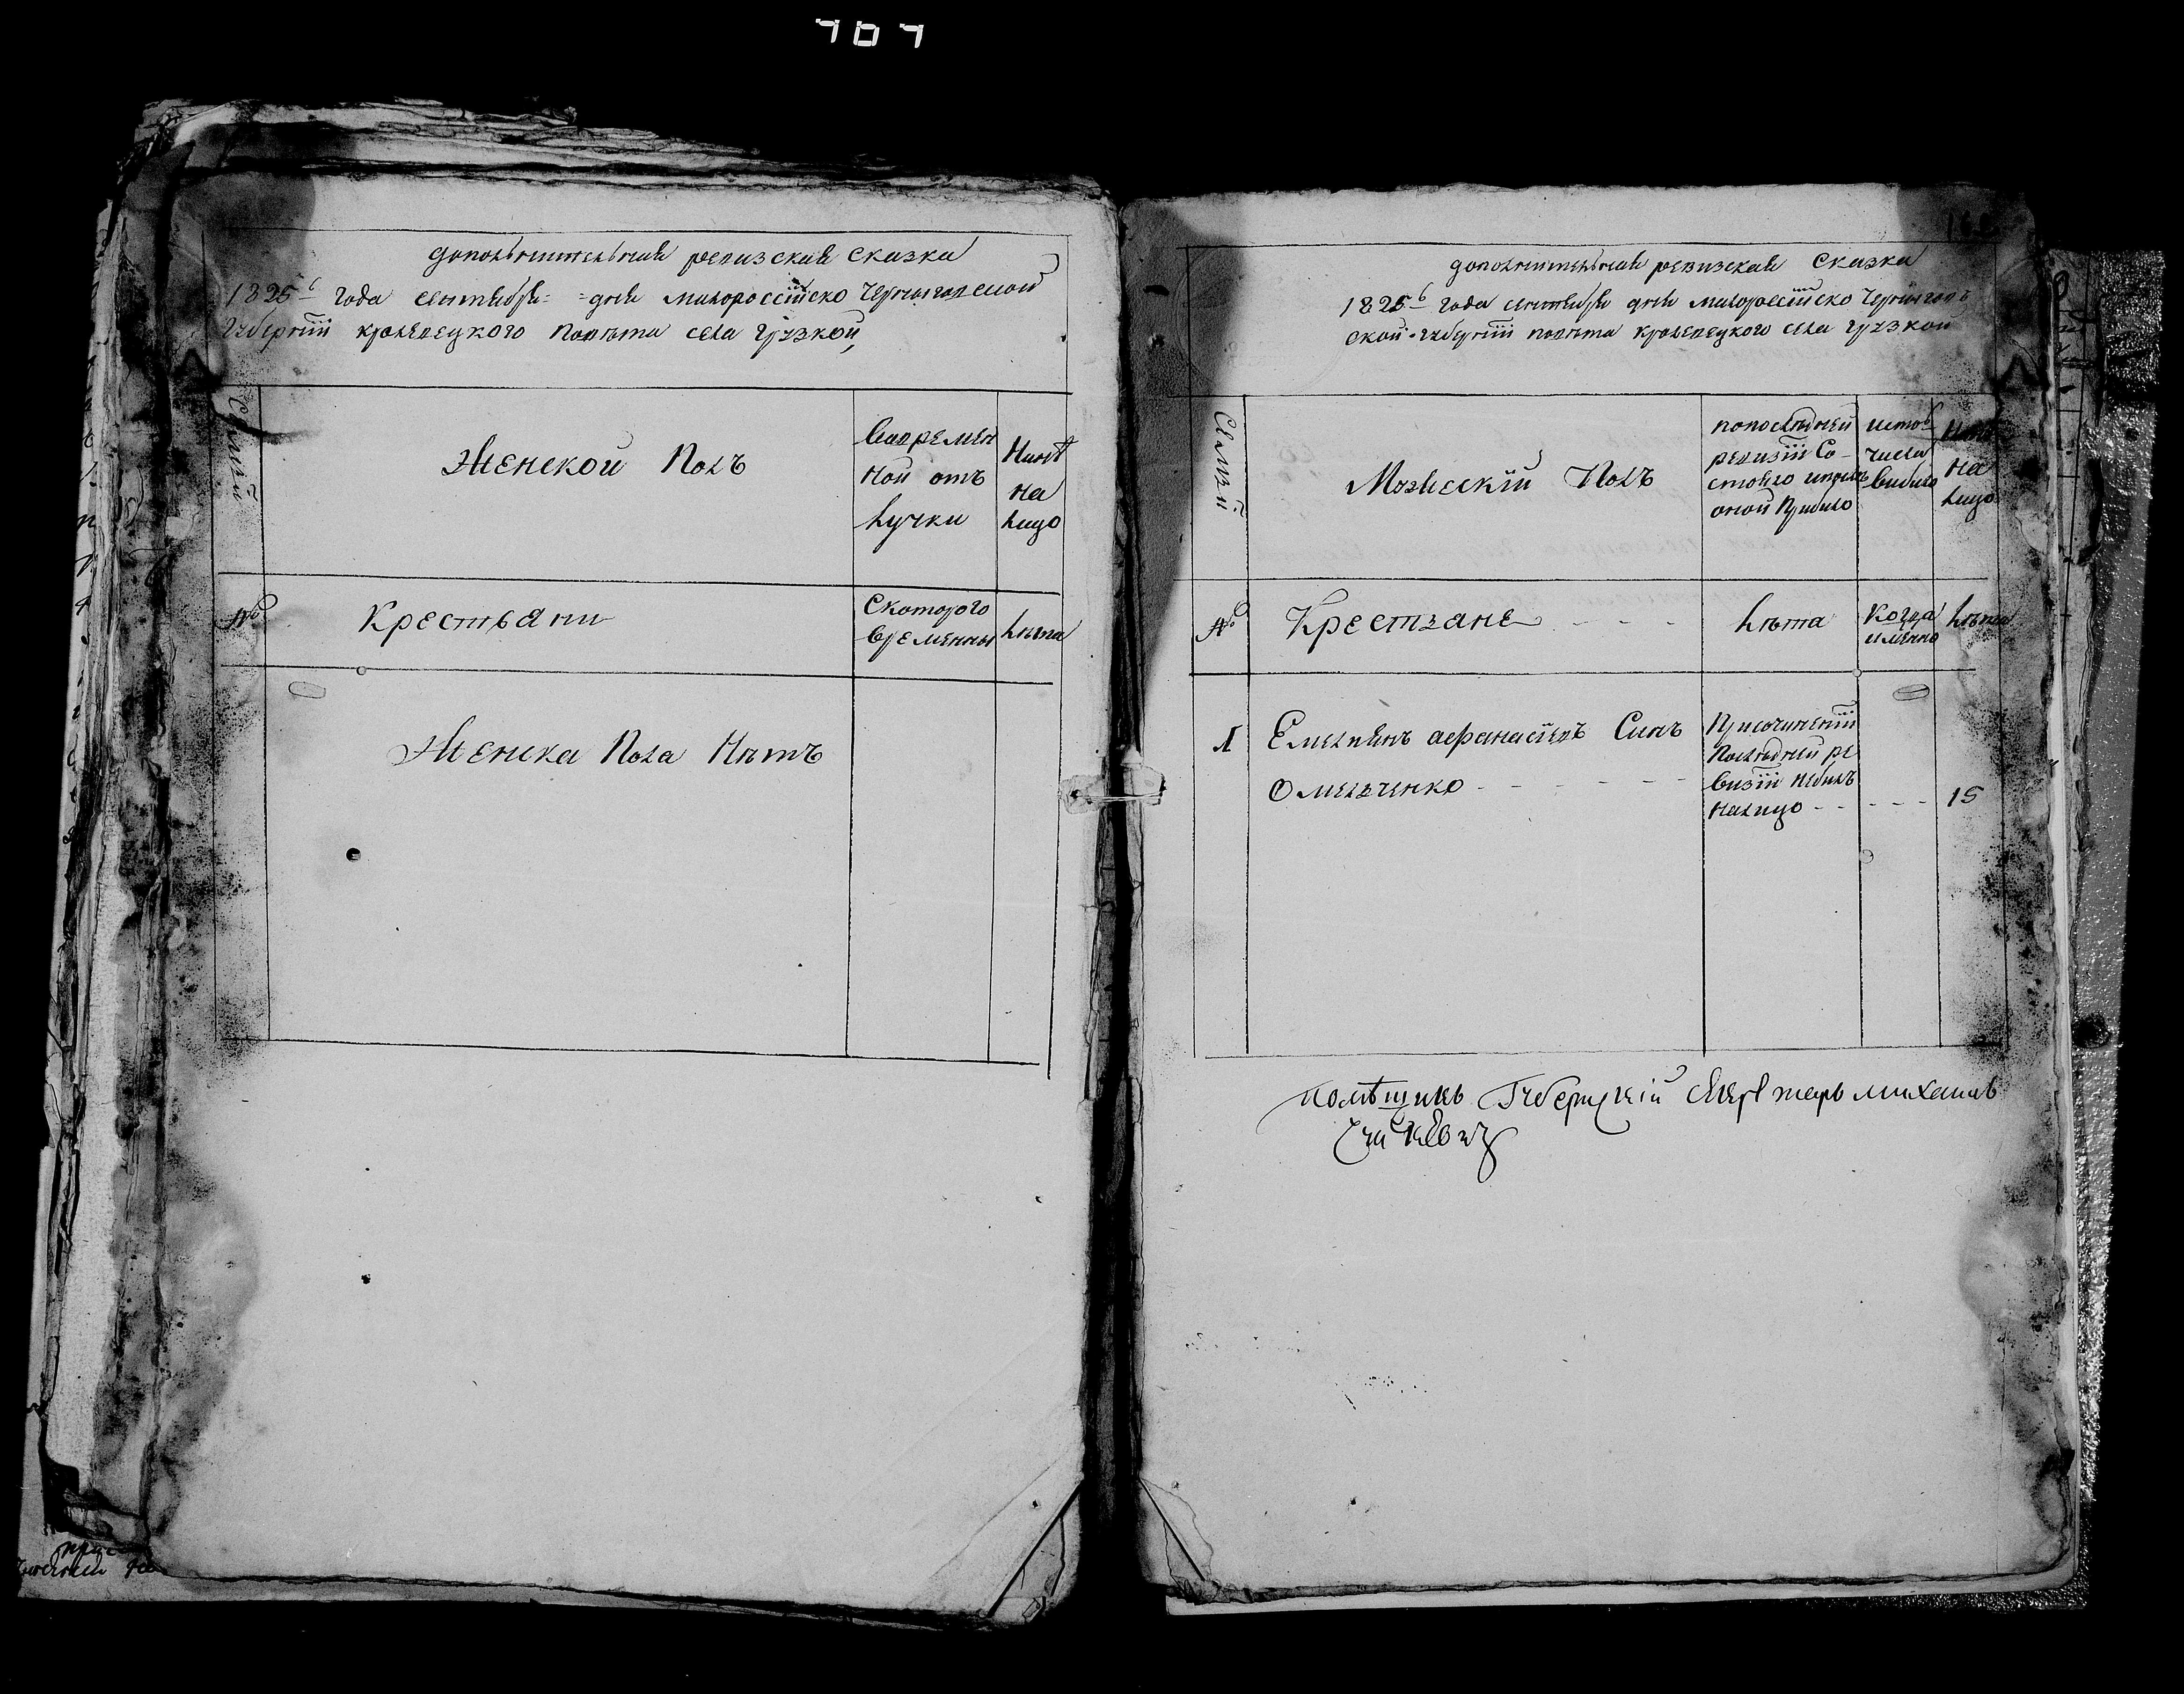 707
дополнителная ревизская сказка
1825 года сентября дня малороссійско черниговской
губерніи кролевецкого повѣта села грузкой
Семьи
Женской Полъ
Вовремен
ной отъ
лучки
Нинѣ
на
лицо
№
Крестьяни
Скоторого
времянны
лѣта
Женска Пола Нѣтъ
дополнителная ревизская Сказка
1825 года сентября дня малороссійско чернигов
ской губерніи повѣта кролевецкого села грузкой
Семьи
Мужескій Полъ
попослѣдней
ревизіи Со
стояло
оной Прибило
истого
числа
вибило
Нинѣ
на
лицо
№
Крестьяне
лѣта
Когда
имянно
лѣта
1
Емельянъ афанасіевъ Синъ
Омельченко
Присочиненіи
Послѣдней ре
визіи небилъ
налицо
15
помѣщикъ Губернскій Секретарь михаилъ